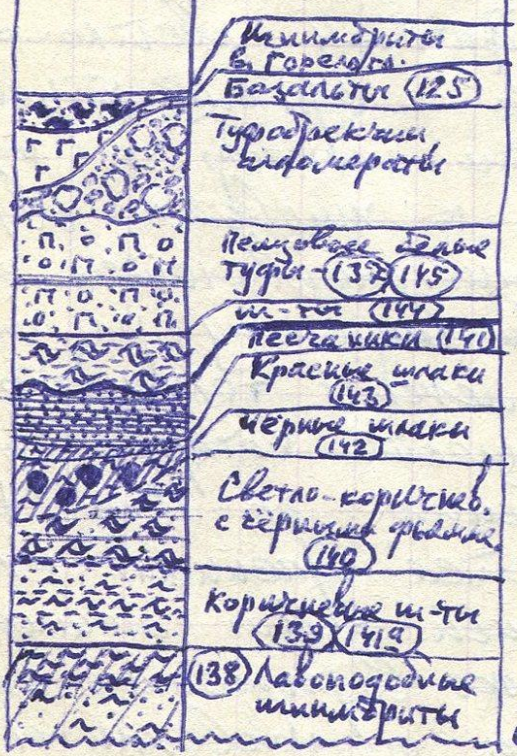 Игнимбриты
в. Горелого.
Базальты (125)
Туфобрекчии
агломераты
Пемзовые белые
туфы - (137) (145)
и-ты (144)
песчаники (141)
Красные шлаки
(143)
чёрные шлаки
(142)
Светло-коричнев.
с чёрными фьямме
(140)
коричневые и-ты
(139) (141а)
(138) Лавоподобные
игнимбриты